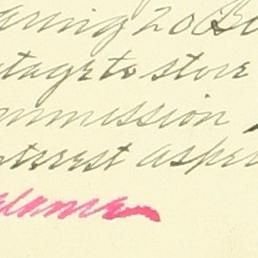 aring 20 Bo
tage to store
mmission
nterest as per
alance